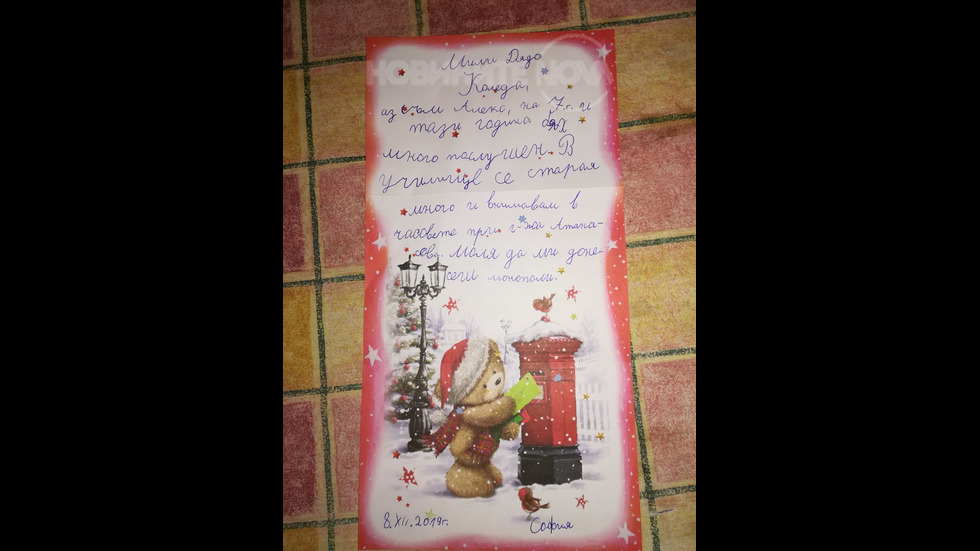 Мили Дядо
Коледа,
аз съм Алекс, на 7 г. и
тази година бях
много послушен. В
училище се старая
много и внимавам в
часовете при г-жа Атана-
сова. Моля да ми доне-
сеш монополи.
8.XII.2019г.
София
НОВИНИТЕ NOVA